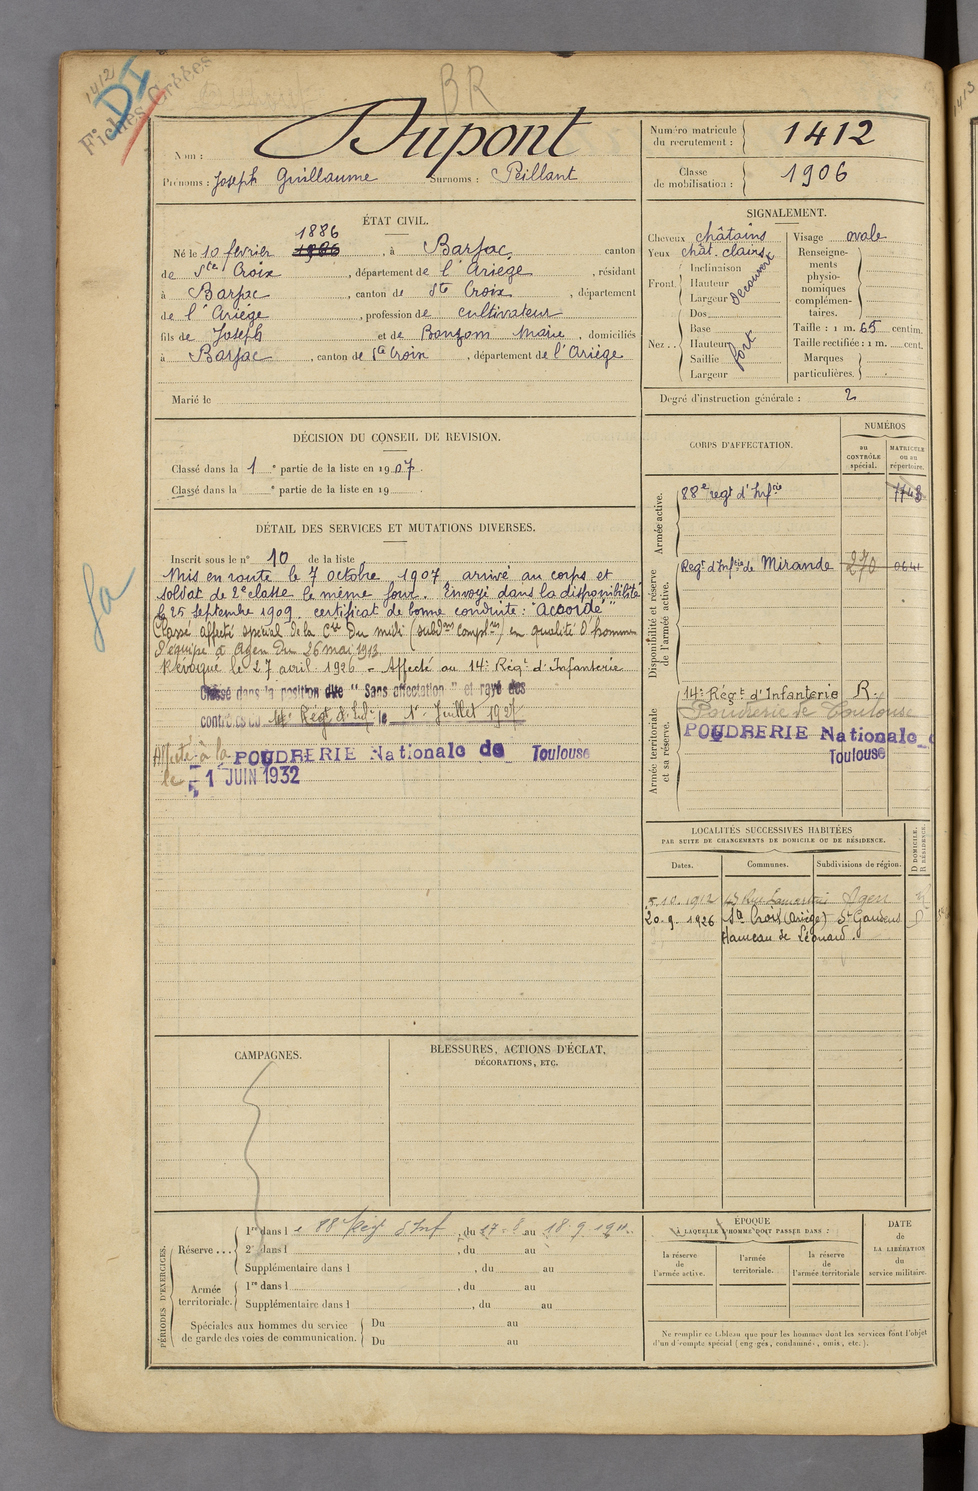 1412
DI
Fiches Créées
BR
Nom : Dupont
Prénoms : Joseph Guillaume Surnoms : Peillant
Numéro matricule du recrutement : 1412
Classe de mobilisation : 1906
ÉTAT CIVIL.
1886
Né le 10 février 1906, à Barjac, canton
de Ste Croix, département de l'Ariège, résidant
à Barjac, canton de Ste Croix, département
de l'Ariège, profession de cultivateur
fils de Joseph et de Bonzom Marie, domiciliés
à Barjac, canton de Ste Croix, département de l'Ariège
Marié le
SIGNALEMENT.
Cheveux châtains
Yeux chât. clairs
Front. Inclinaison
Hauteur
Largeur
découvert
Nez.. Dos
Base
Hauteur
Saillie
Largeur
fort
Visage ovale
Renseignements physionomiques complémentaires.
Taille : 1 m. 65 centim.
Taille rectifiée : 1 m. cent.
Marques particulières.
Degré d'instruction générale : 2
DÉCISION DU CONSEIL DE REVISION.
Classé dans la 1 e partie de la liste en 1907.
Classé dans la e partie de la liste en 19 .
DÉTAIL DES SERVICES ET MUTATIONS DIVERSES.
Inscrit sous le n° 10 de la liste
Mis en route le 7 octobre 1907, arrivé au corps et
soldat de 2e classe le même jour. Envoyé dans la disponibilité
le 25 septembre 1909, certificat de bonne conduite : "Accordé"
Classé affecté spécial de la Cie du midi (subdons complres) en qualité d'homme
d'équipe à Agen du 26 mai 1913
Révoqué le 27 avril 1926 - Affecté au 14e Régt d'Infanterie
Classé dans la position dite "Sans affectation" et rayé des
contrôles du 14e Régt d'Inf. le 1er Juillet 1927
Affecté à la POUDRERIE Nationale de Toulouse
le 1 JUIN 1932
CORPS D'AFFECTATION.
NUMÉROS
au CONTRÔLE spécial.
MATRICULE ou au répertoire.
Armée active.
88e regt d'Infrie 1743
Disponibilité et réserve de l'armée active.
Regt d'Inftie de Mirande 270 0641
Armée territoriale et sa réserve.
14e Régt d'Infanterie R.
Poudrerie de Toulouse
POUDRERIE Nationale d
Toulouse
LOCALITÉS SUCCESSIVES HABITÉES
PAR SUITE DE CHANGEMENTS DE DOMICILE OU DE RÉSIDENCE.
Dates. Communes. Subdivisions de région. D DOMICILE. R RÉSIDENCE.
5.10.1912 Rue Lamartine Agen R
20-9-1926 Ste Croix (Ariège) St Gaudens D
Hameau de Léonard.
CAMPAGNES.
BLESSURES, ACTIONS D'ÉCLAT,
DÉCORATIONS, ETC.
PÉRIODES D'EXERCICES.
Réserve... 1re dans le 88e Régt d'Inf, du 27-8 au 18-9-1911.
2e dans l , du au
Supplémentaire dans l , du au
Armée territoriale. 1re dans l , du au
Supplémentaire dans l , du au
Spéciales aux hommes du service de garde des voies de communication. Du au
Du au
ÉPOQUE
À LAQUELLE L'HOMME DOIT PASSER DANS :
la réserve de l'armée active.
l'armée territoriale.
la réserve de l'armée territoriale
DATE de LA LIBÉRATION du service militaire.
Ne remplir ce tableau que pour les hommes dont les services font l'objet
d'un décompte spécial (engagés, condamnés, omis, etc.).
1413